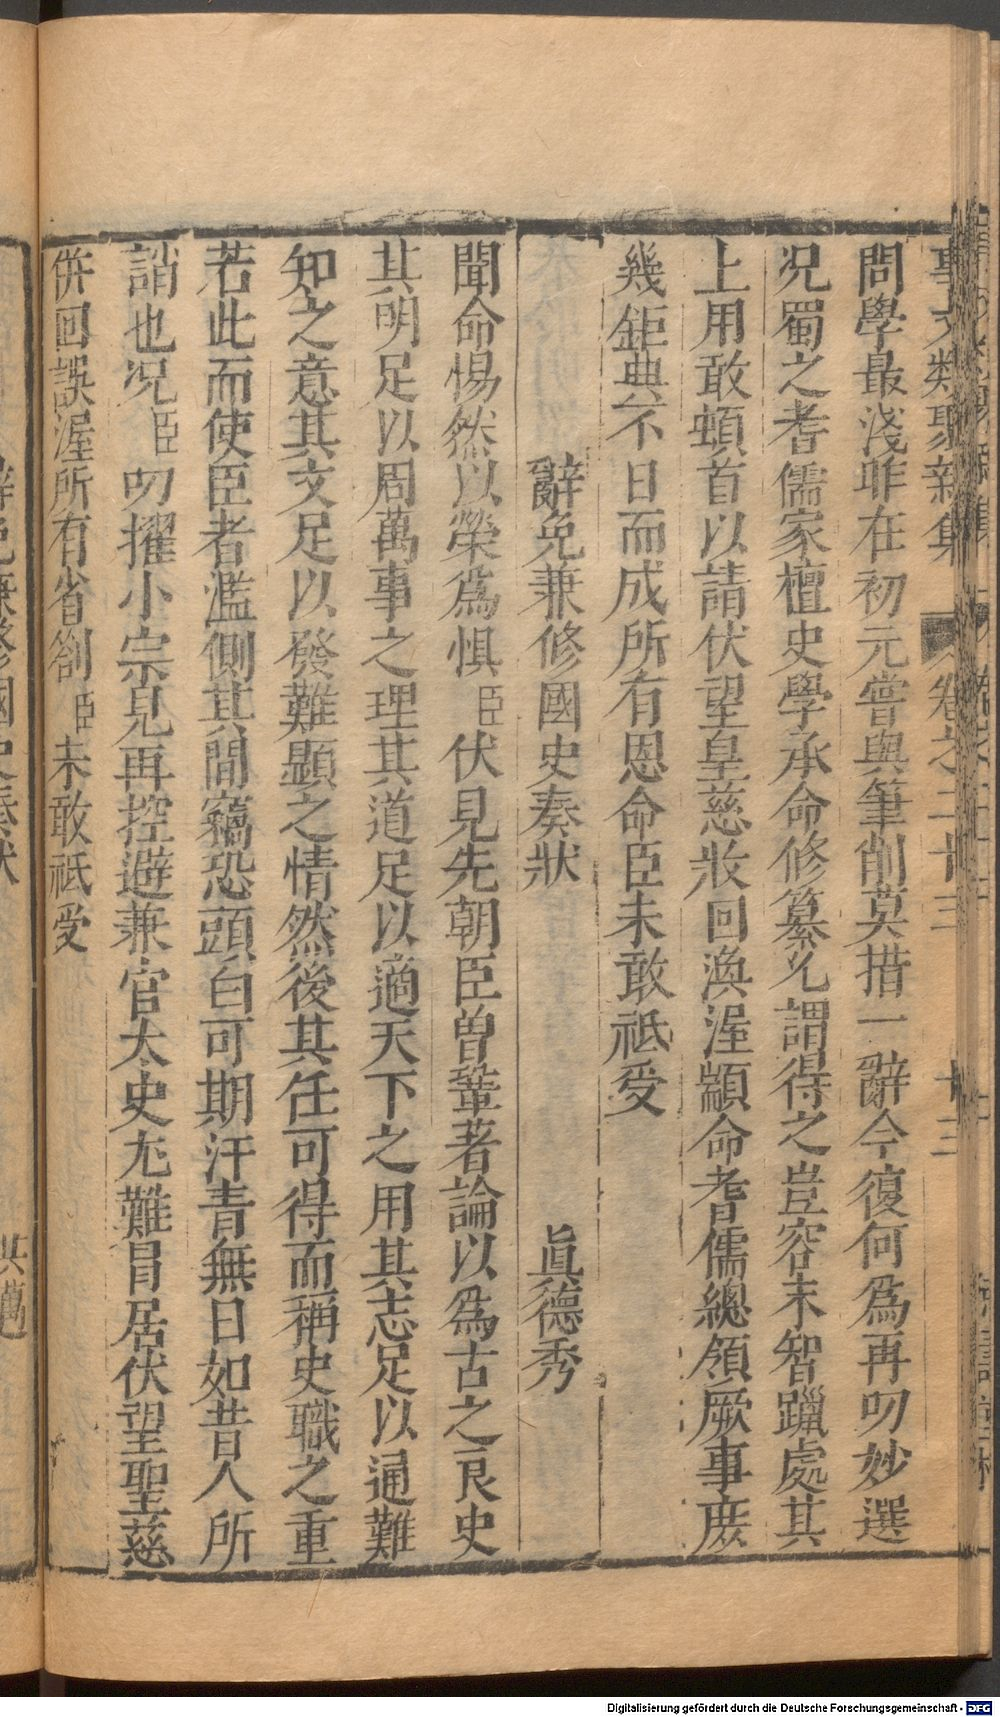 事文類聚新集 卷之二十三 十三
問學最淺昨在初元嘗與筆削莫措一辭今復何爲再叨妙選
况蜀之耆儒家檀史學承命修纂允謂得之豈容末智躐處其
上用敢頓首以請伏望皇慈收回渙渥顓命耆儒總領厥事庶
幾鉅典不日而成所有恩命臣未敢祗受
辭免兼修國史奏狀 眞德秀
聞命惕然以榮爲惧臣伏見先朝臣曾鞏著論以爲古之良史
其明足以周萬事之理其道足以適天下之用其志足以通難
知之意其文足以發難顯之情然後其任可得而稱史職之重
若此而使臣者濫側其間竊恐頭白可期汗青無日如昔人所
誚也况臣叨擢小宗見再控避兼官太史尤難冒居伏望聖慈
倂回誤渥所有省劄臣未敢祗受
Digitalisierung gefördert durch die Deutsche Forschungsgemeinschaft - DFG